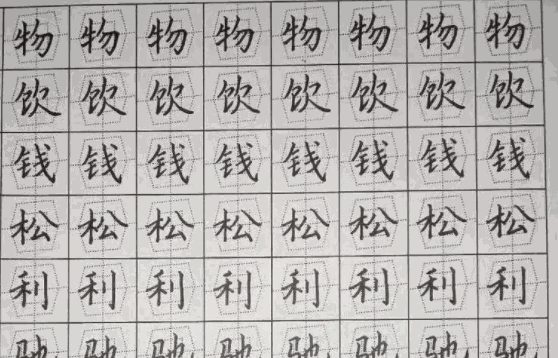 物物物物物物物物
饮饮饮饮饮饮饮饮
钱钱钱钱钱钱钱钱
松松松松松松松松
利利利利利利利利
驰驰驰驰驰驰驰驰